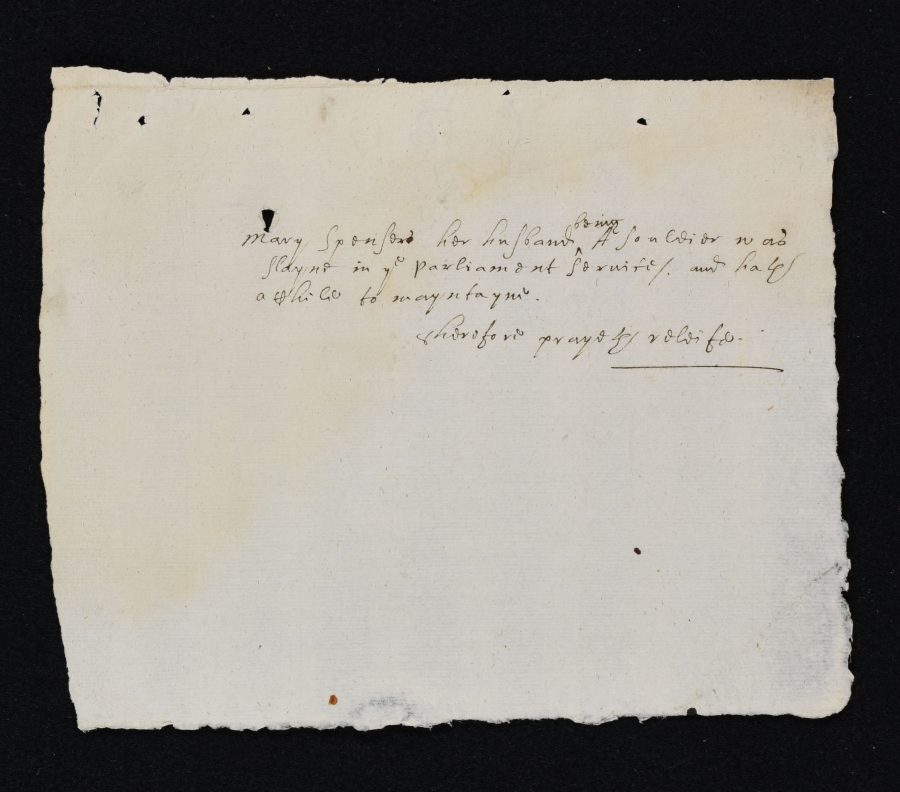 Mary Spenser her husband being A souldier was
slayne in ye Parliament service, and hath
a Child to mayntayne.
therefore prayeth releife.